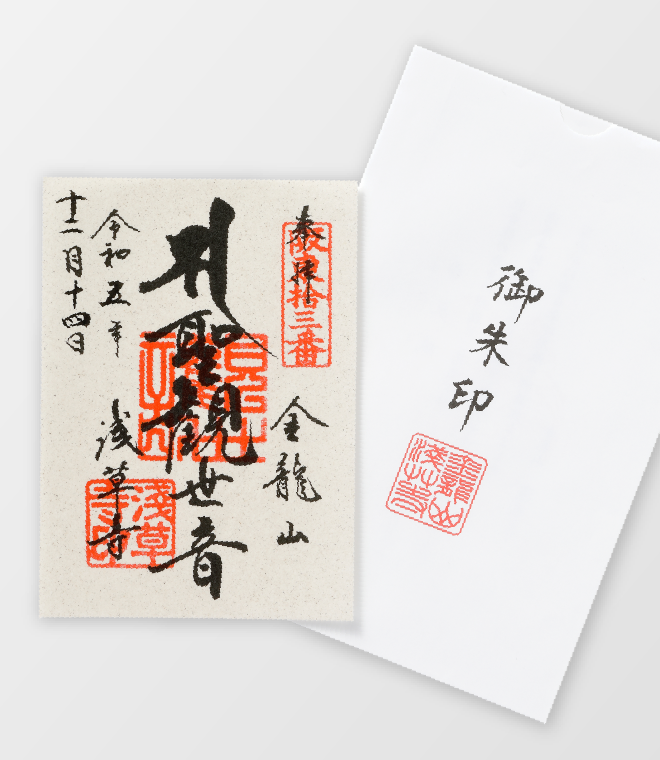 奉拝
坂東拾三番
金龍山
聖観世音
浅草寺
令和五年
十二月十四日
御朱印
金龍山
浅草寺